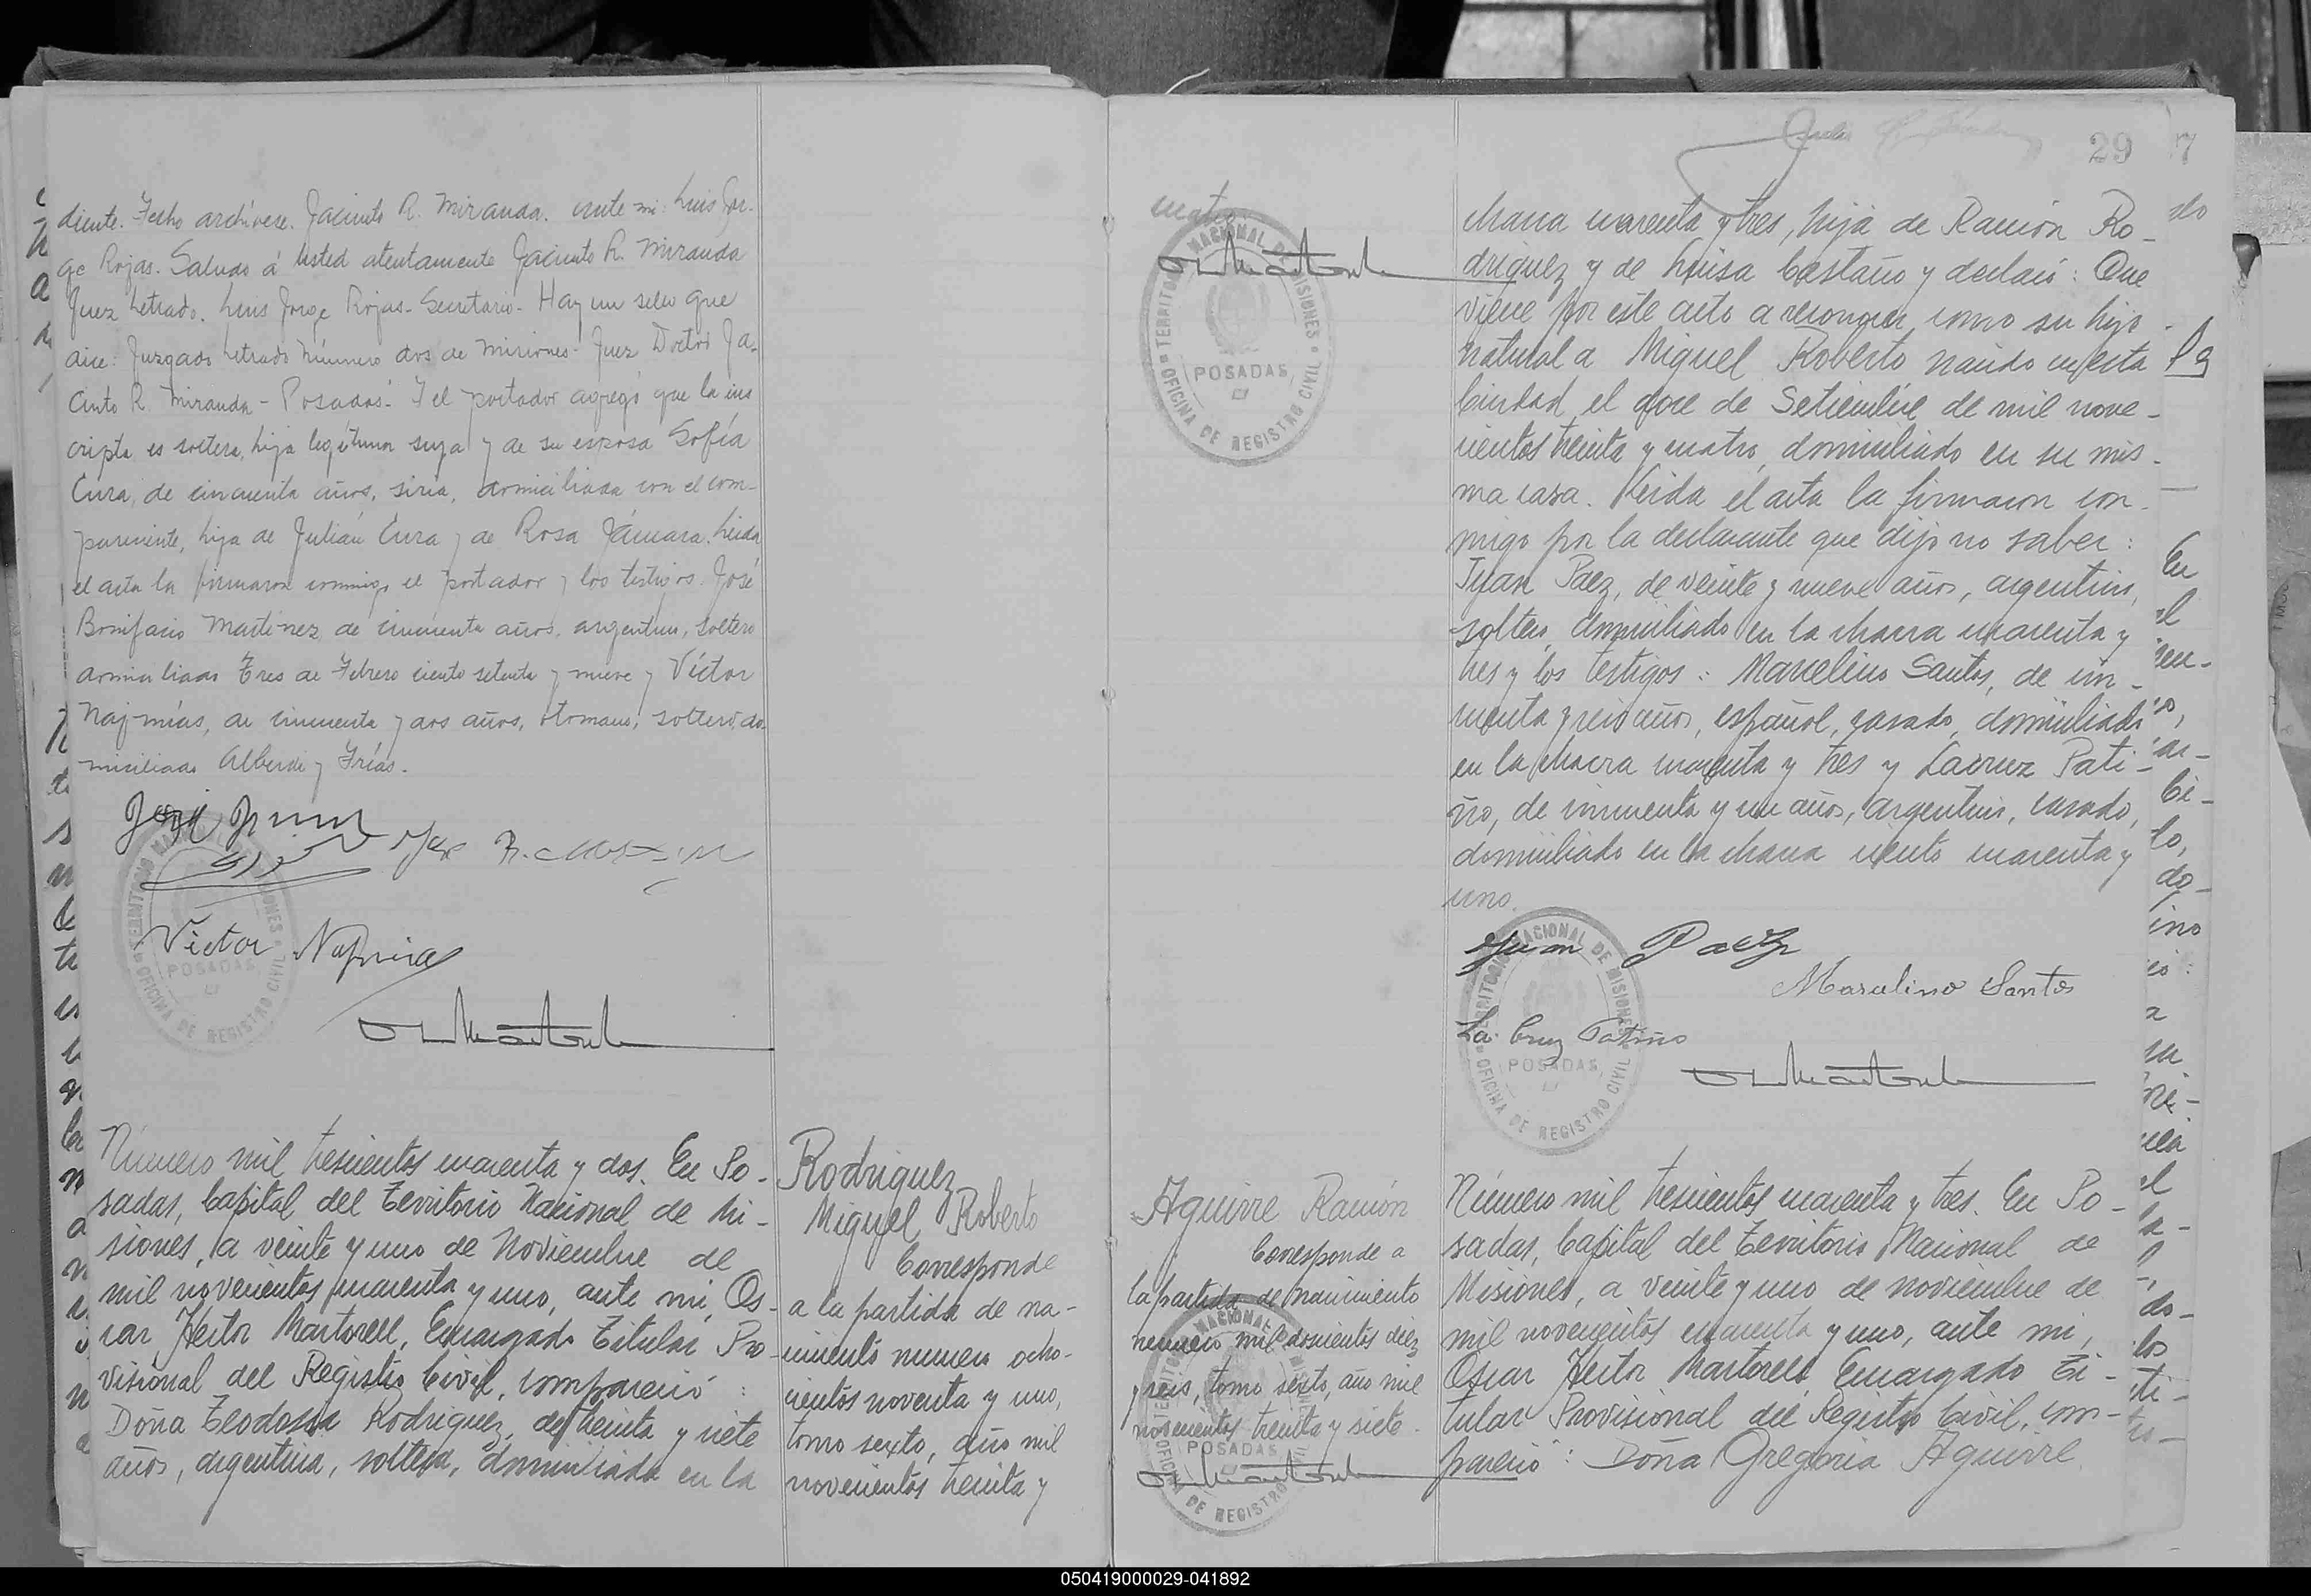 diente. Fecho archívese. Jacinto R. Miranda. Ante mi: Luis Jor-
ge Rojas. Saludo á Usted atentamente Jacinto R. Miranda
Juez Letrado. Luis Jorge Rojas. Secretario. Hay un sello que
dice: Juzgado Letrado Número dos de Misiones. Juez Doctor Ja-
cinto R. Miranda - Posadas. Y el portador agregó que la ins
cripta es soltera, hija legítima suya y de su esposa Sofía
Cura, de cincuenta años, siria, domiciliada con el com-
pareciente, hija de Julián Cura y de Rosa Jámara. Leida
el acta la firmaron conmigo el portador y los testigos José
Bonifacio Martinez de cincuenta años, argentino, soltero
domiciliado Tres de Febrero ciento setenta y nueve y Víctor
Najmías, de cincuenta y dos años, otomano, soltero, do-
miciliado Alberdi y Frías.
Victor Najmias
TERRITORIO NACIONAL DE MISIONES
POSADAS
OFICINA DE REGISTRO CIVIL
Número mil trescientos cuarenta y dos. En Po-
sadas, Capital del Territorio Nacional de Mi-
siones, a veinte y uno de Noviembre de
mil novecientos cuarenta y uno, ante mi, Os-
car Héctor Martorell, Encargado Titular Pro-
visional del Registro Civil, compareció:
Doña Teodosia Rodriguez, de treinta y siete
años, argentina, soltera, domiciliada en la
Rodriguez
Miguel Roberto
Corresponde
a la partida de na-
cimiento numero ocho-
cientos noventa y uno,
tomo sexto, año mil
novecientos treinta y
29
7
cuatro.
TERRITORIO NACIONAL DE MISIONES
POSADAS
OFICINA DE REGISTRO CIVIL
chacra cuarenta y tres, hija de Ramón Ro-
driguez y de Luisa Castaño y declaró: Que
viene por este acto a reconocer como su hijo
natural a Miguel Roberto nacido en esta
Ciudad el doce de Setiembre de mil nove-
cientos treinta y cuatro, domiciliado en su mis-
ma casa. Leida el acta la firmaron con-
migo por la declarante que dijo no saber:
Juan Paez, de veinte y nueve años, argentino,
soltero, domiciliado en la chacra cuarenta y
tres y los testigos: Marcelino Santos, de cin-
cuenta y seis años, español, casado, domiciliado
en la chacra cuarenta y tres y Lacruz Pati-
ño, de cincuenta y un años, argentino, casado,
domiciliado en la chacra ciento cuarenta y
uno.
Juan Paez
Marcelino Santos
La Cruz Patiño
TERRITORIO NACIONAL DE MISIONES
POSADAS
OFICINA DE REGISTRO CIVIL
Aguirre Ramón
Corresponde a
la partida de nacimiento
numero mil doscientos diez
y seis, tomo sexto, año mil
novecientos treinta y siete.
POSADAS
Número mil trescientos cuarenta y tres. En Po-
sadas, Capital del Territorio Nacional de
Misiones, a veinte y uno de noviembre de
mil novecientos cuarenta y uno, ante mi,
Oscar Héctor Martorell Encargado Ti-
tular Provisional del Registro Civil, com-
pareció: Doña Gregoria Aguirre
050419000029-041892